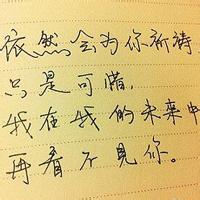 依然会为你祈祷.
只是可惜,
我在我的未来中
再看不見你。